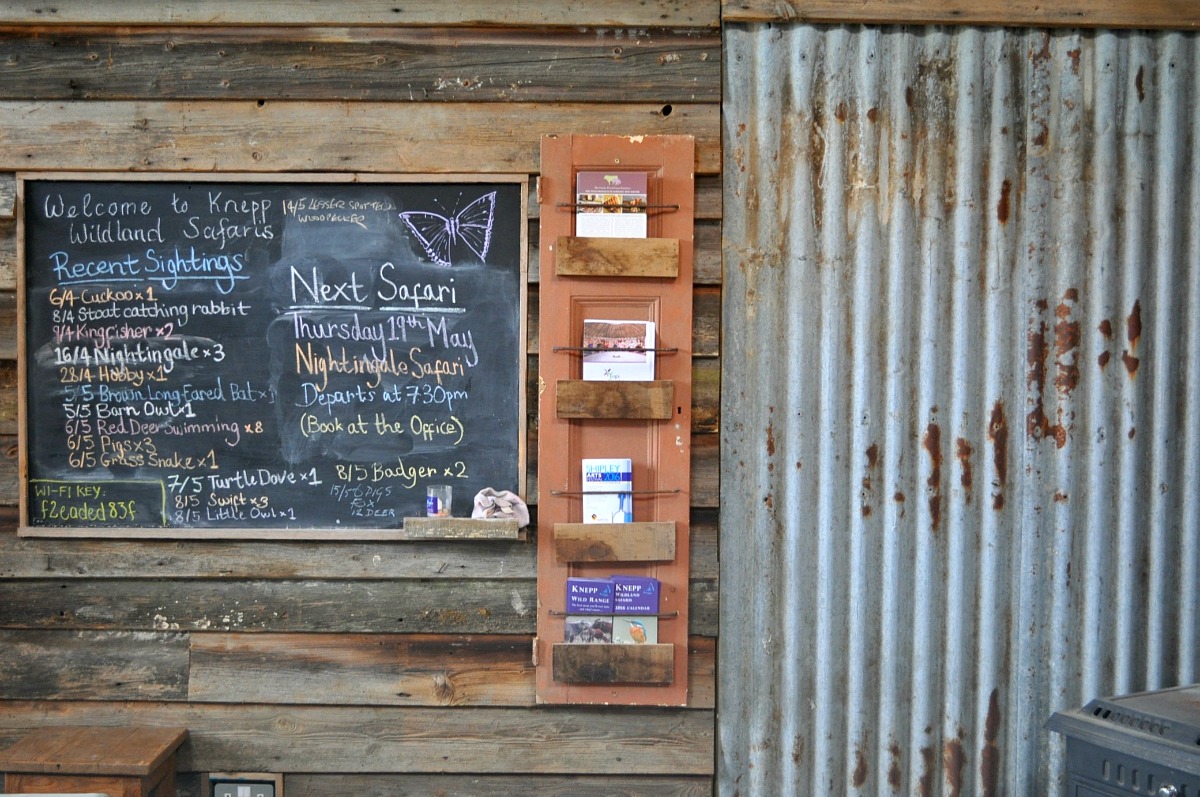 Welcome to Knepp
Wildland Safaris
14/5 LESSER SPOTTED
WOODPECKER
Recent Sightings
6/4 Cuckoo x 1
8/4 Stoat catching rabbit
9/4 Kingfisher x2
16/4 Nightingale x 3
28/4 Hobby x 1
5/5 Brown Long Eared Bat x 1
5/5 Barn Owl x 1
6/5 Red Deer Swimming x 8
6/5 Pigs x 3
6/5 Grass Snake x 1
7/5 Turtle Dove x 1
8/5 Swift x 3
8/5 Little Owl x 1
WI-FI KEY:
f2eaded83f
Next Safari
Thursday 19th May
Nightingale Safari
Departs at 7:30pm
(Book at the Office)
8/5 Badger x 2
15/5 6 PIGS
12 DEER
SHIPLEY
ARTS
KNEPP
WILD RANGE
KNEPP
WILDLAND
SAFARIS
2016 CALENDAR